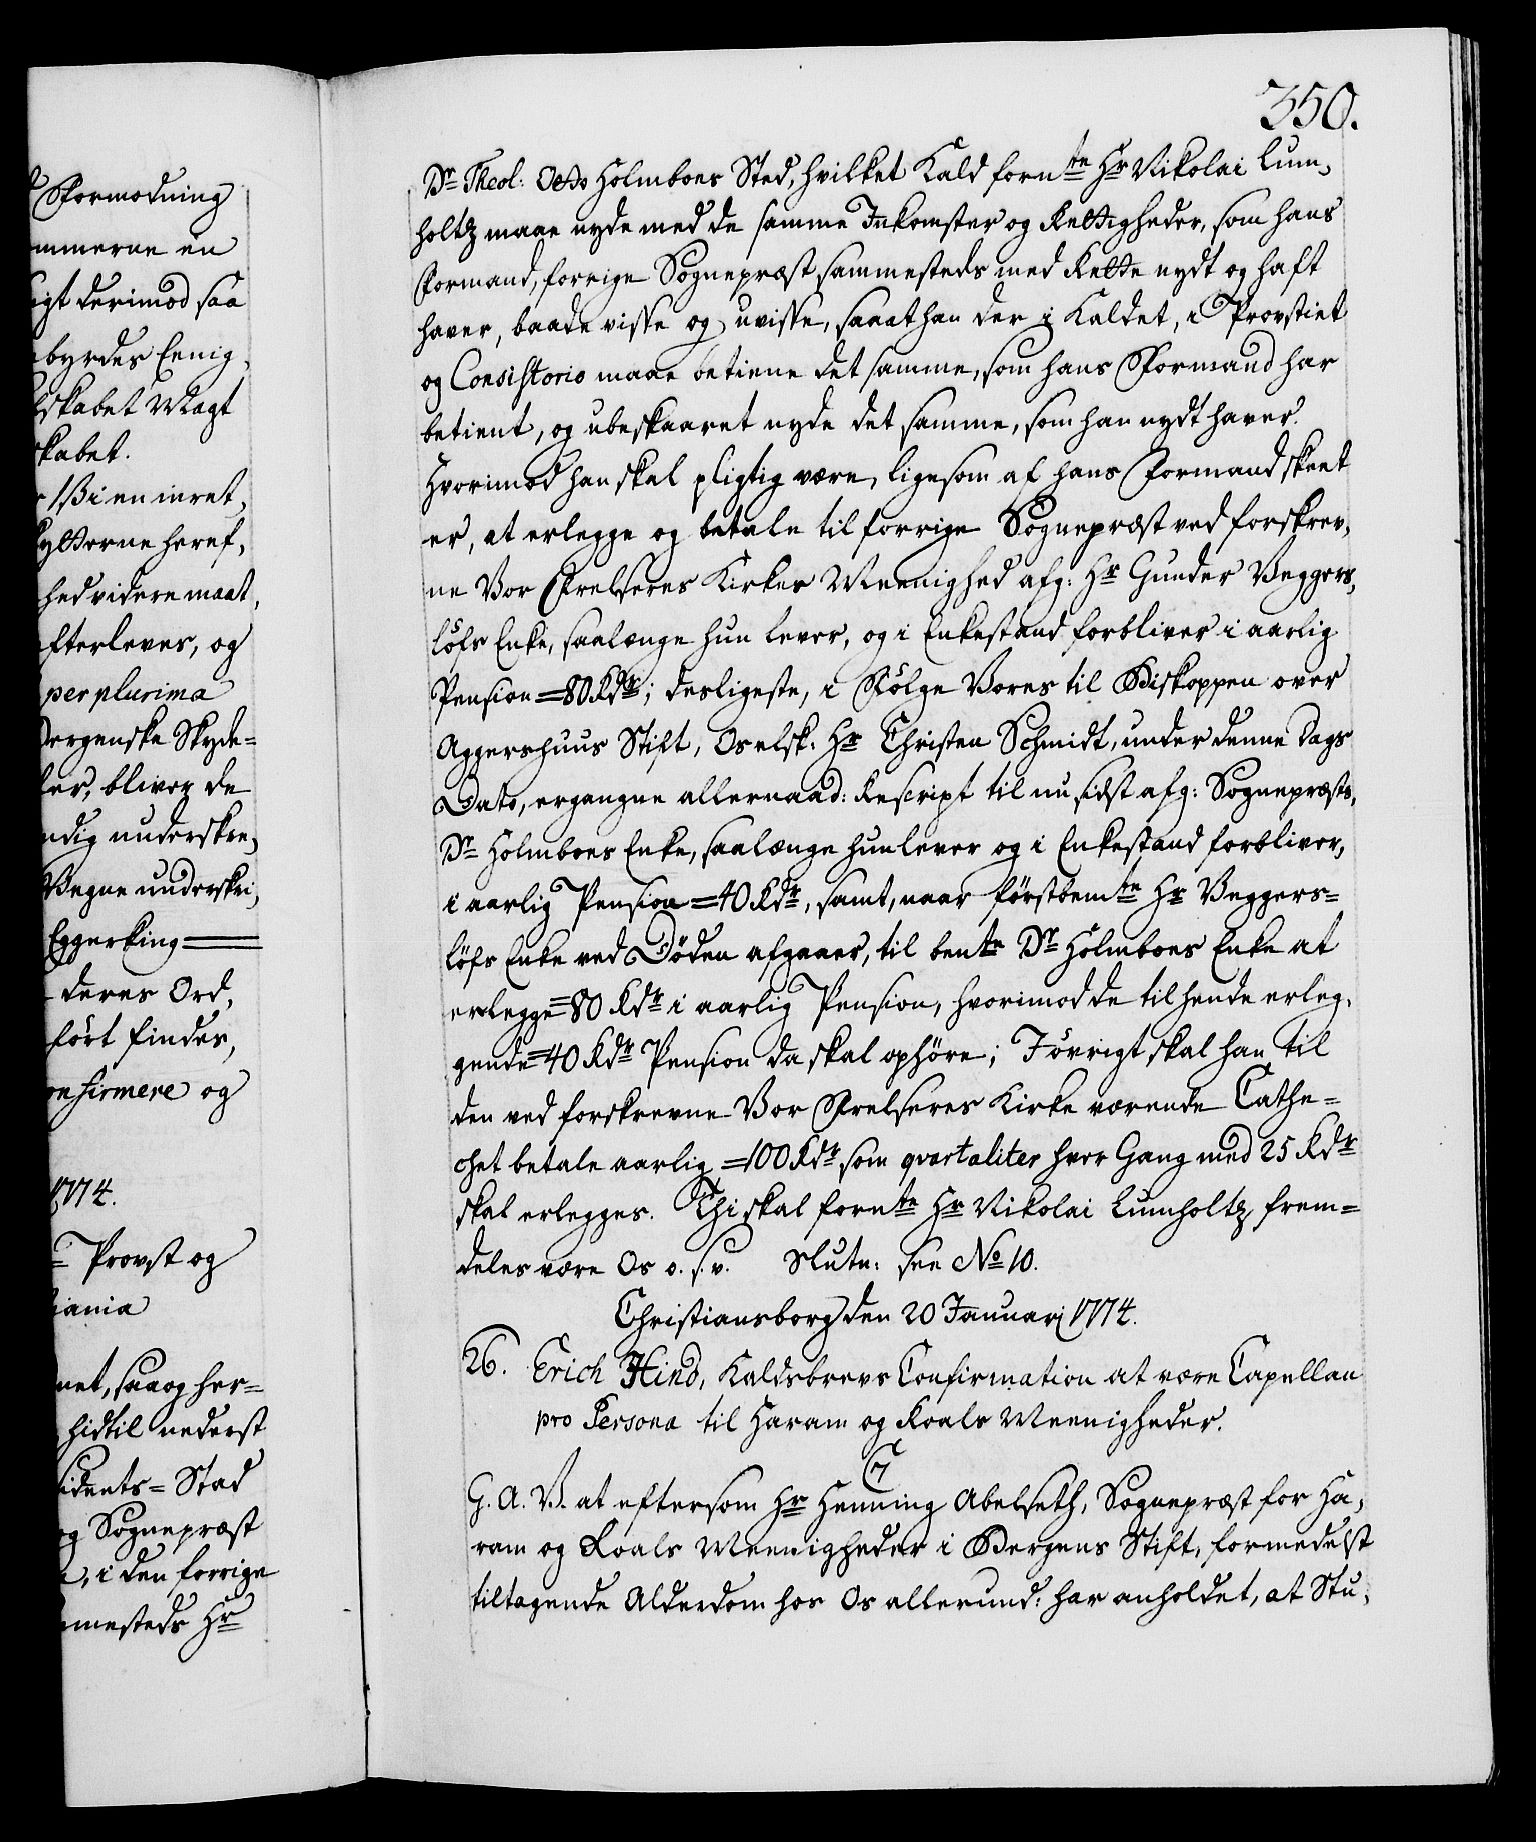 Formodning
ommerne en
ligt derimod saa
byrdes Eenig,
skabet Magt
skabet.
13 i en inret,
Skytterne heref,
hed videre maat,
efterleves, og
per plurima
Bergenske Skyde=
ler, bliver de
ndig underskre,
Vegne underskri,
Eggerking
deres Ord,
fört findes,
onfirmere og
1774.
Provst og
iania
net, saa og her=
hidtil nederst
sidents=Stad
og Sognepræst
, i den forrige
mmesteds Hr
350.
Dr Theol: Otto Holmboes Sted, hvilket Kald fornte Hr Nikolai Lum,
holtz maae nyde med de samme Inkomster og Rettigheder, som hans
Formand, forrige Sognepræst sammesteds med Rette nydt og haft
haver, baade visse og uvisse, saa at han der i Kaldet, i Provstiet
og Consistorio maae betiene det samme, som hans Formand har
betient, og ubeskaaret nyde det samme, som han nydt haver.
Hvorimod han skal pligtig være, ligesom af hans Formand skeet
er, at erlegge og betale til forrige Sognepræst ved forskrev,
ne Vor Frelseres Kirkes Meenighed afg: Hr Gunder Veggers,
löfs Enke, saalænge hun lever, og i Enkestand forbliver i aarlig
Pension =80 Rdr; desligeste, i Fölge Vores til Biskoppen over
Aggershuus Stift, Os elsk: Hr Christen Schmidt, under denne Dags
Dato, ergangne allernaad: Rescript til nu sidst afg: Sognepræsts,
Dr Holmboes Enke, saalænge hun lever og i Enkestand forbliver,
i aarlig Pension =40 Rdr, samt, naar förstbemte Hr Veggers=
löfs Enke ved Döden afgaaer, til bemte Dr Holmboes Enke at
erlegge =80 Rdr i aarlig Pension, hvorimod de til hende erleg,
gende =40 Rdr Pension da skal ophöre; I övrigt skal han til
den ved forskrevne Vor Frelseres Kirke værende Cathe=
chet betale aarlig =100 Rdr som qvartaliter hver Gang med 25 Rdr
skal erlegges. Thi skal fornte Hr Nikolai Lumholtz frem=
deles være Os o. s. v. Slutn: see No 10.
Christiansborg den 20 Januarj 1774.
26. Erich Hind, Kaldsbrevs Confirmation at være Capellan
pro Persona til Haram og Roals Meenigheder.
C7
G. A. V. at eftersom Hr Henning Abelseth, Sognepræst for Ha,
ram og Roals Meenigheder i Bergens Stift, formedelst
tiltagende Alderdom hos Os allerund: har anholdet, at Stu,